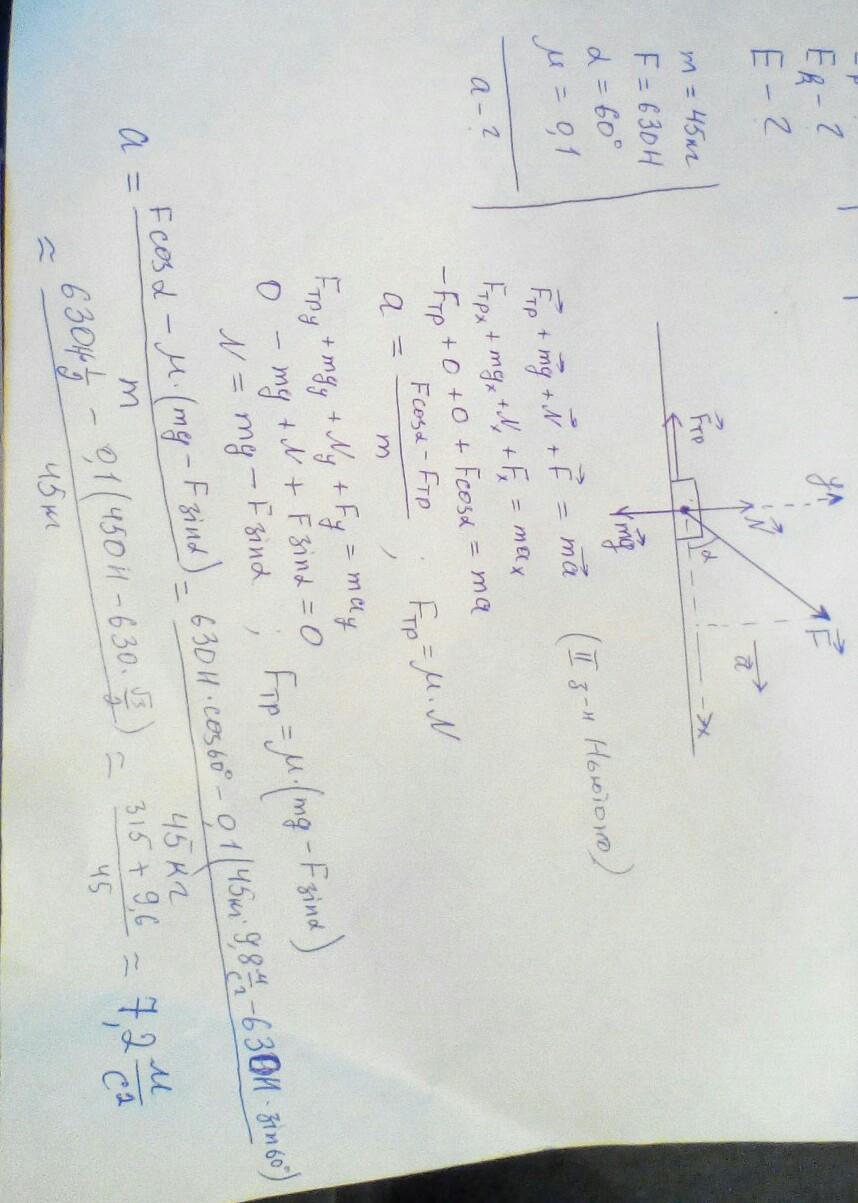 Eк - ?
E - ?
m = 45кг
F = 630Н
α = 60°
μ = 0,1
a - ?
y
N⃗
F⃗
a⃗
α
F⃗тр
x
mg⃗
F⃗тр + mg⃗ + N⃗ + F⃗ = ma⃗ (II з-н Ньютона)
Fтрx + mgx + Nx + Fx = max
-Fтр + 0 + 0 + Fcosα = ma
a = (Fcosα - Fтр)/m ; Fтр = μ·N
Fтрy + mgy + Ny + Fy = may
0 - mg + N + Fsinα = 0
N = mg - Fsinα ; Fтр = μ·(mg - Fsinα)
a = (Fcosα - μ·(mg - Fsinα))/m = (630Н·cos60° - 0,1(45кг·9,8 м/с² - 630Н·sin60°))/45кг
≈ (630Н·1/2 - 0,1(450Н - 630·√3/2))/45кг ≈ (315 + 9,6)/45 = 7,2 м/с²